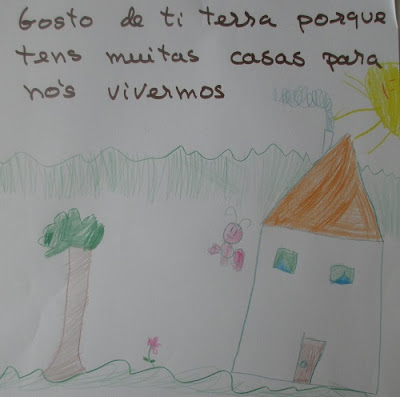 Gosto de ti terra porque
tens muitas casas para
nós vivermos